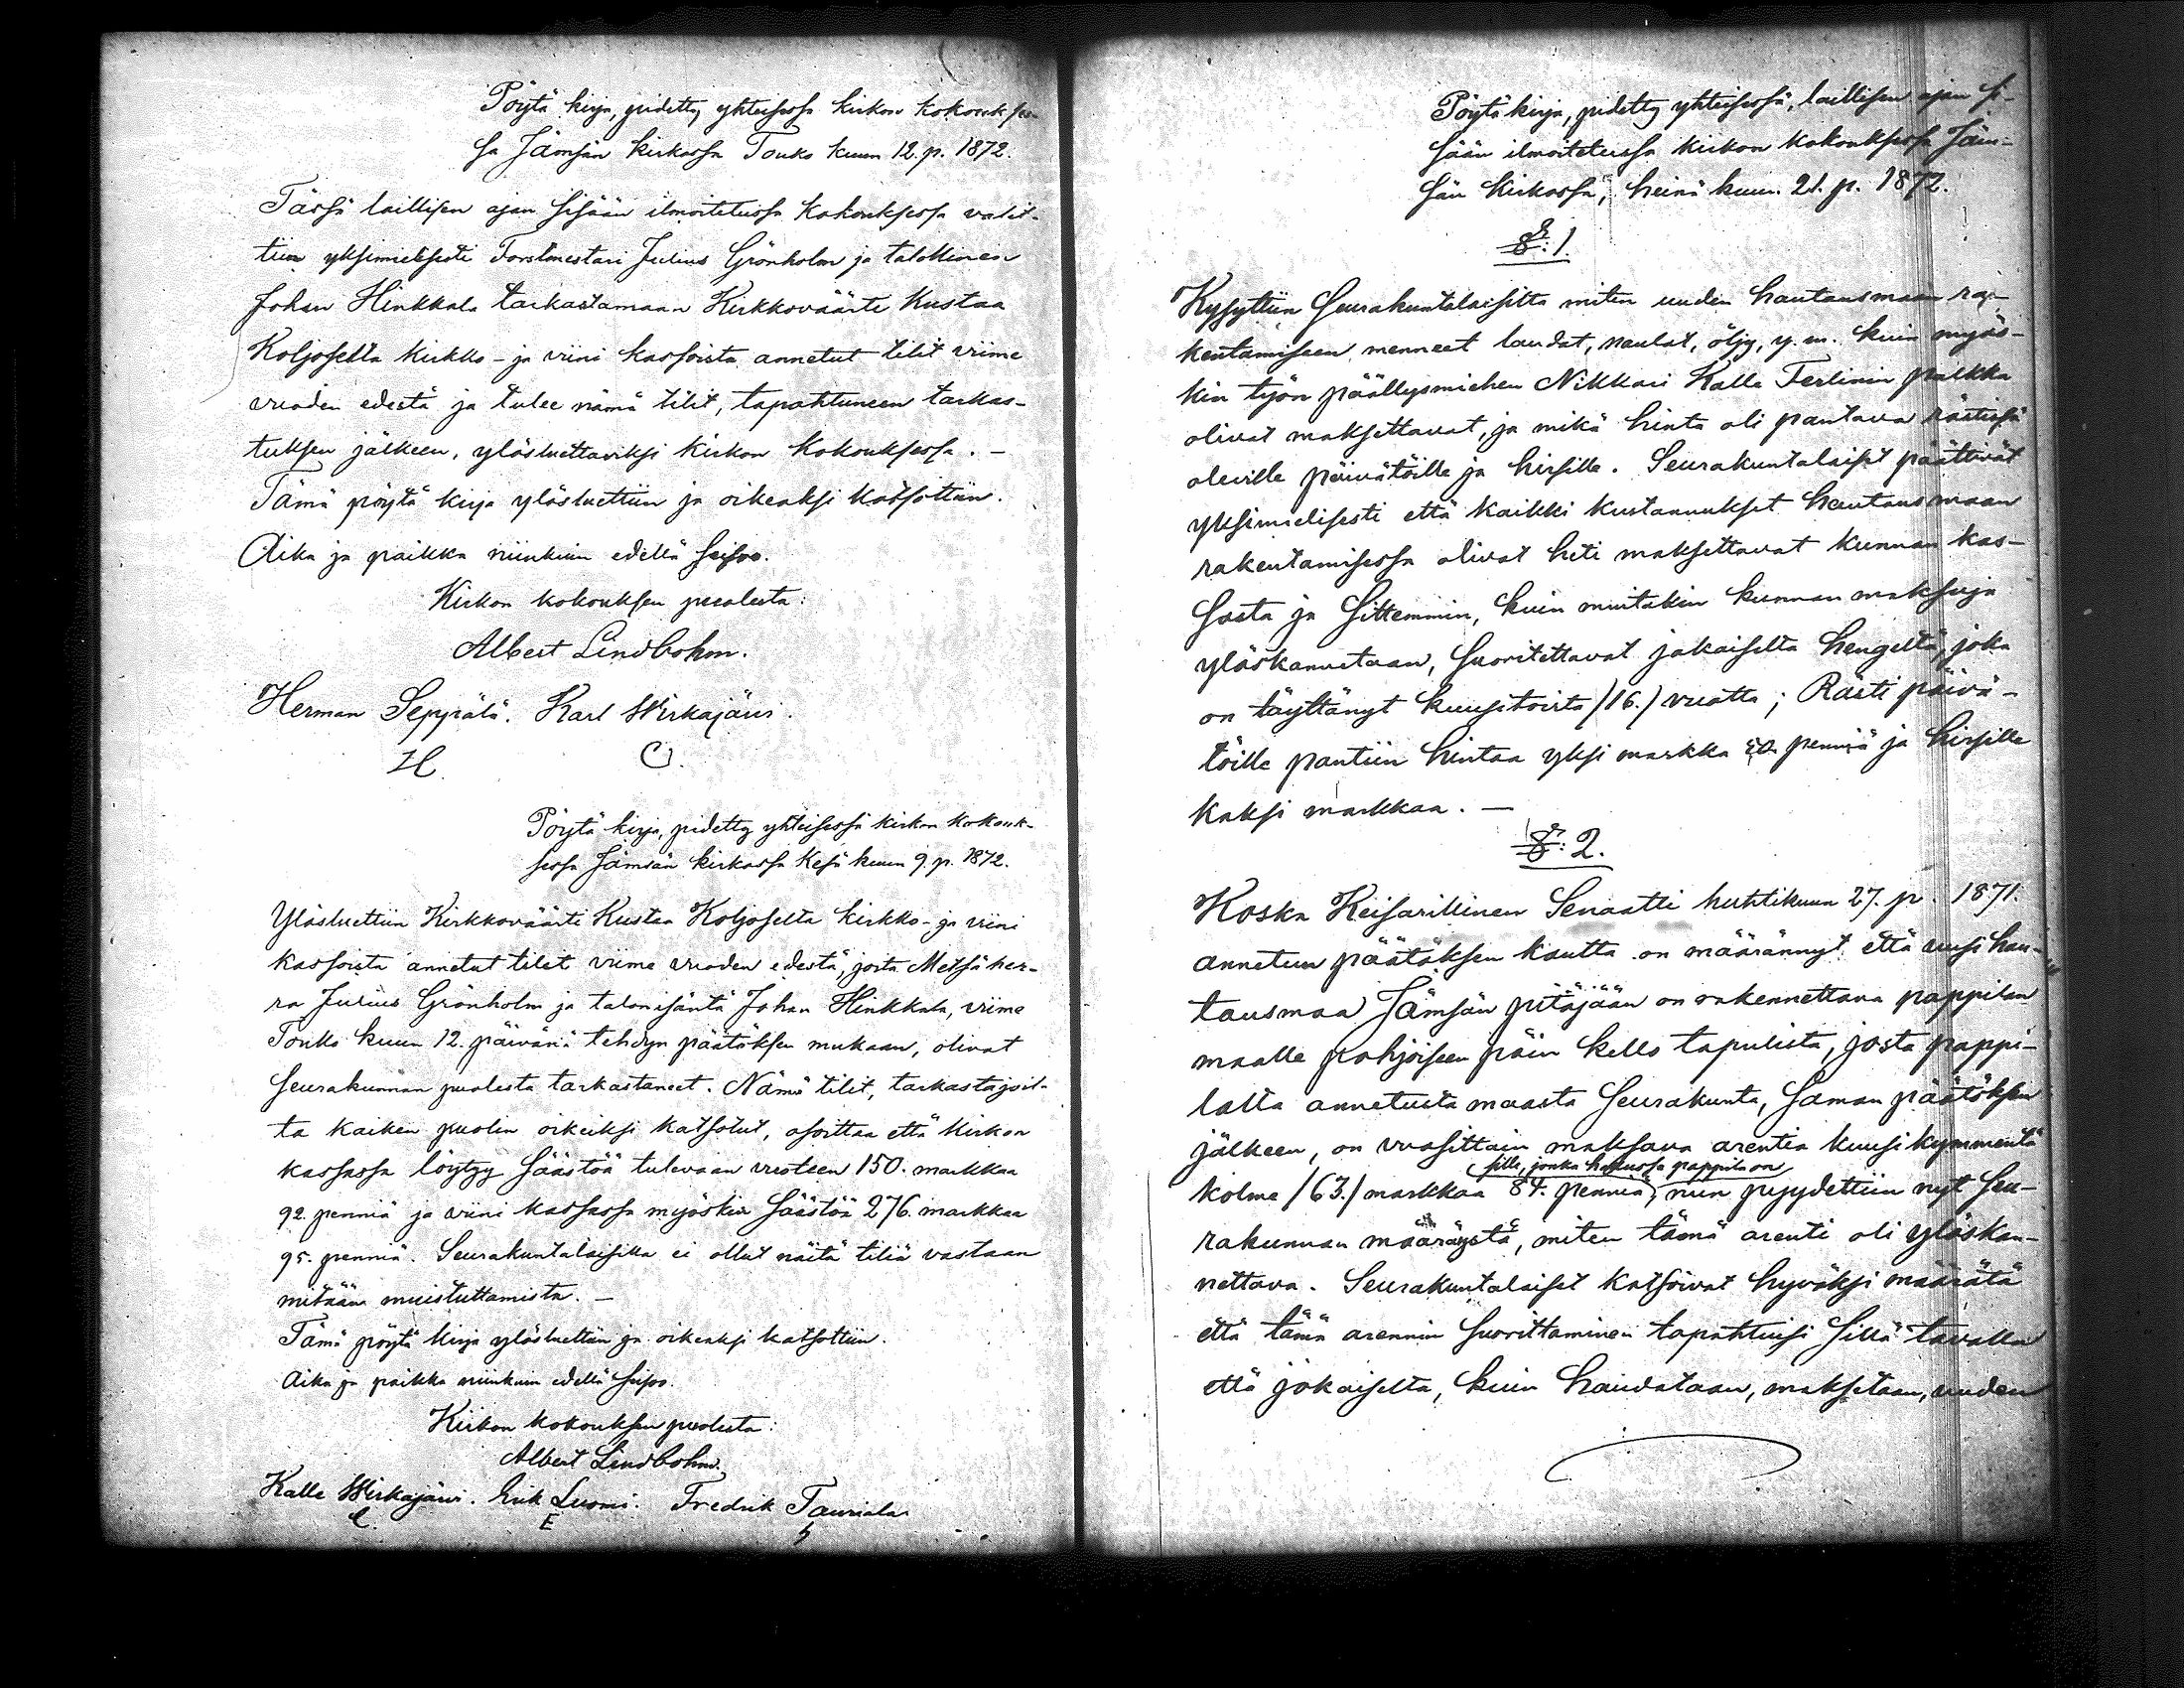 Pöytä kirja, pidetty yhteisessä kirkon kokoukses-
sa Jämsän kirkossa Touko kuun 12. p. 1872.
Tässä laillisen ajan sisään ilmoitetussa kokouksessa valit-
tiin yksimielisesti Forstmestari Julius Grönholm ja talollinen
Johan Hinkkala tarkastamaan Kirkkoväärti Kustaa
Koljoselta kirkko- ja viini kassoista annetut tilit viime
vuoden edestä ja tulee nämä tilit, tapahtuneen tarkas-
tuksen jälkeen, ylösluettaviksi kirkon kokouksessa. —
Tämä pöytä kirja ylösluettiin ja oikeaksi katsottiin.
Aika ja paikka niinkuin edellä seisoo.
Kirkon kokouksen puolesta:
Albert Lindbohm.
Herman Seppälä. Karl Wirkajärvi.
H.
Pöytä kirja, pidetty yhteisessä kirkon kokouk-
sessa Jämsän kirkossa Kesä kuun 9. p. 1872.
Ylösluettiin Kirkkoväärti Kustaa Koljoselta kirkko- ja viini
kassoista annetut tilit viime vuoden edestä, josta Metsäher-
ra Julius Grönholm ja talonisäntä Johan Hinkkala, viime
Touko kuun 12. päivänä tehdyn päätöksen mukaan, olivat
seurakunnan puolesta tarkastaneet. Nämä tilit, tarkastajoil-
ta kaiken puolin oikeiksi katsotut, osoittaa että kirkon
kassassa löytyy säästöä tulevaan vuoteen 150. markkaa
92. penniä ja viini kassassa myöskin säästöä 276. markkaa
95. penniä. Seurakuntalaisilla ei ollut näitä tiliä vastaan
mitään muistuttamista. —
Tämä pöytä kirja ylösluettiin ja oikeaksi katsottiin.
Aika ja paikka niinkuin edellä seisoo.
Kirkon kokouksen puolesta:
Albert Lindbohm.
Kalle Wirkajärvi. Erik Luomi. Fredrik Tauriala
E
Pöytä kirja, pidetty yhteisessä, laillisen ajan si-
sään ilmoitetussa kirkon kokouksessa Jäm-
sän kirkossa, heinä kuun. 21. p. 1872.
§: 1.
Kysyttiin Seurakuntalaisilta miten uuden hautausmaan ra-
kentamiseen menneet laudat, naulat, öljy, y. m. kuin myös-
kin työn päällysmiehen Nikkari Kalle Ferlinin palkka
olivat maksettavat, ja mikä hinta oli pantava rästissä
oleville päivätöille ja hirsille. Seurakuntalaiset päättivät
yksimielisesti että kaikki kustannukset hautausmaan
rakentamisessa olivat heti maksettavat kunnan kas-
sasta ja sittemmin, kuin muitakin kunnan maksuja
ylöskannetaan, suoritettavat jokaiselta hengeltä, joka
on täyttänyt kuusitoista /16./ vuotta; Rästi päivä-
töille pantiin hintaa yksi markka 50. penniä ja hirsille
kaksi markkaa. —
§: 2.
Koska Keisarillinen Senaatti huhtikuun 27. p. 1871.
annetun päätöksen kautta on määrännyt että uusi hau-
tausmaa Jämsän pitäjään on rakennettava pappilan
maalle pohjoiseen päin kello tapulista, josta pappi-
lalta annetusta maasta Seurakunta, saman päätöksen
jälkeen, on vuosittain maksava arentia kuusikymmentä
sille, jonka hallussa pappila on
kolme /63./ markkaa 84. penniä, niin pyydettiin nyt seu-
rakunnan määräystä, miten tämä arenti oli ylöskan-
nettava. Seurakuntalaiset katsoivat hyväksi määrätä
että tämä arennin suorittaminen tapahtuisi sillä tavalla
että jokaiselta, kuin haudataan, maksetaan, uuden